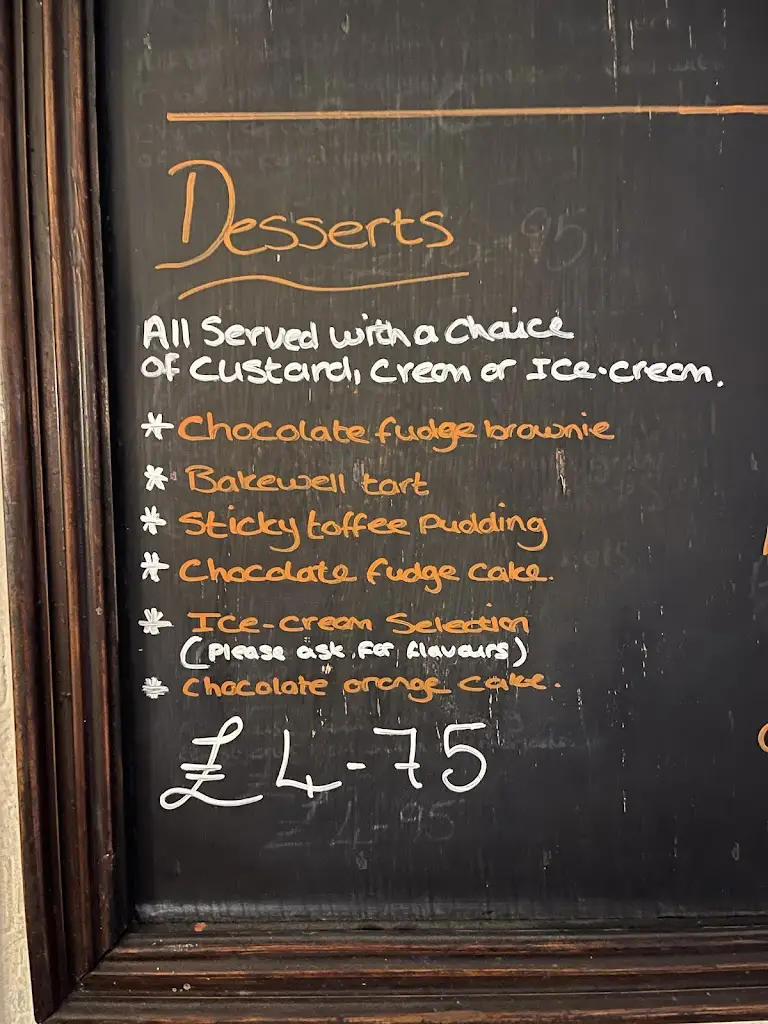 Desserts
All Served with a Choice
of Custard, Cream or Ice-cream.
* Chocolate fudge brownie
* Bakewell tart
* Sticky toffee Pudding
* Chocolate fudge cake.
* Ice-cream Selection
(Please ask for flavours)
* Chocolate orange cake.
£4-75
£4-95